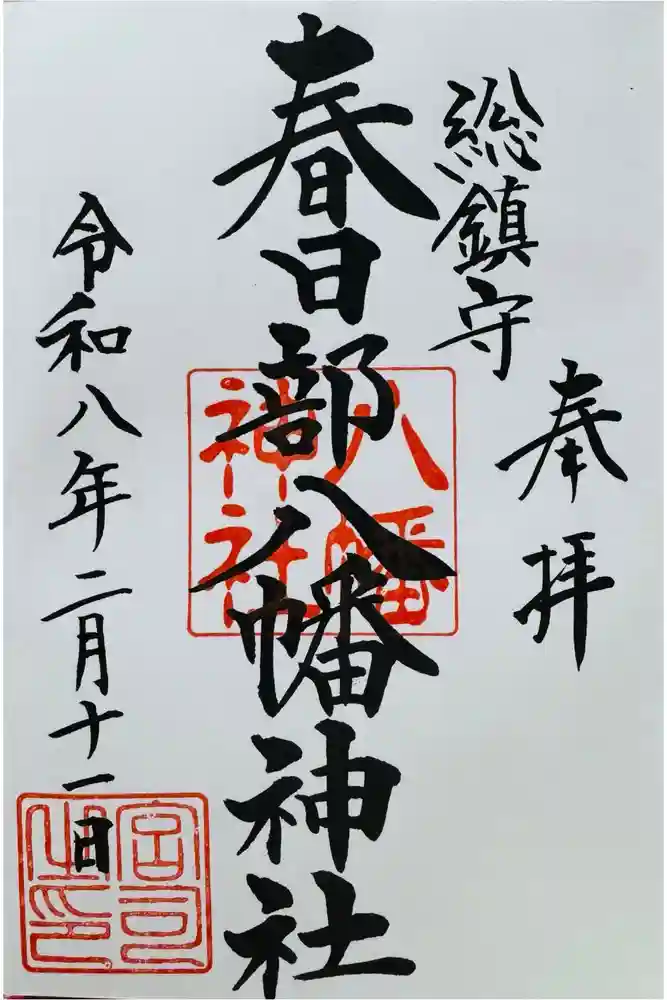 奉拝
総鎮守
春日部八幡神社
令和八年二月十一日
八幡
神社
宮司
之印